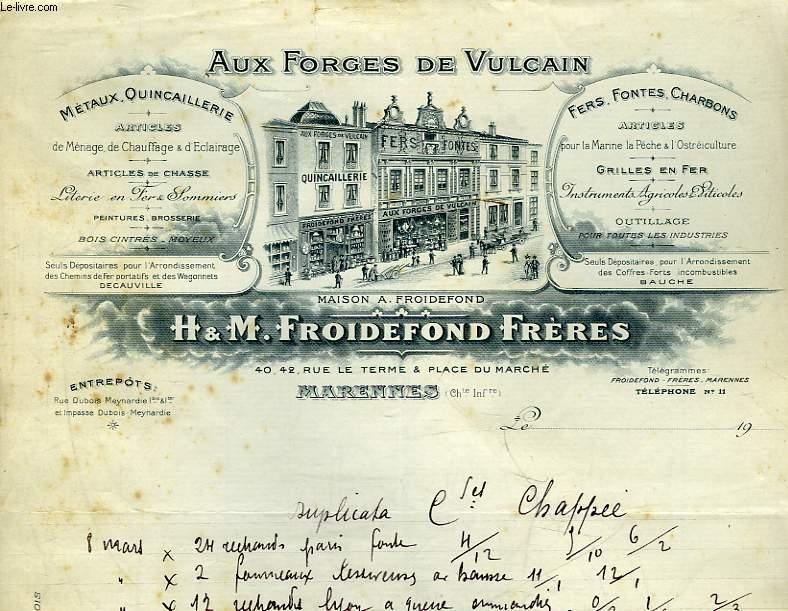 Le-livre.com
AUX FORGES DE VULCAIN
MÉTAUX, QUINCAILLERIE
ARTICLES
de Ménage, de Chauffage & d'Eclairage
ARTICLES DE CHASSE
Literie en Fer & Sommiers
PEINTURES, BROSSERIE
BOIS CINTRÉS - MOYEUX
Seuls Dépositaires pour l'Arrondissement
des Chemins de Fer portatifs et des Wagonnets
DECAUVILLE
AUX FORGES DE VULCAIN
FERS FONTES
QUINCAILLERIE
FROIDEFOND FRÈRES
AUX FORGES DE VULCAIN
FERS, FONTES, CHARBONS
ARTICLES
pour la Marine la Pêche & l'Ostréiculture
GRILLES EN FER
Instruments Agricoles & Viticoles
OUTILLAGE
POUR TOUTES LES INDUSTRIES
Seuls Dépositaires pour l'Arrondissement
des Coffres-Forts incombustibles
BAUCHE
MAISON A. FROIDEFOND
H & M. FROIDEFOND FRÈRES
40, 42, RUE LE TERME & PLACE DU MARCHÉ
MARENNES (Chte Infre)
ENTREPÔTS:
Rue Dubois Meynardie
et Impasse Dubois-Meynardie
Télégrammes:
FROIDEFOND-FRÈRES, MARENNES
TÉLÉPHONE No 11
Le 19
Duplicata Chappée
8 mars x 24 rechauds paris fonte 4/12 6/2
" x 2 fourneaux 11/1 12/1
" x 12 rechauds lyon a